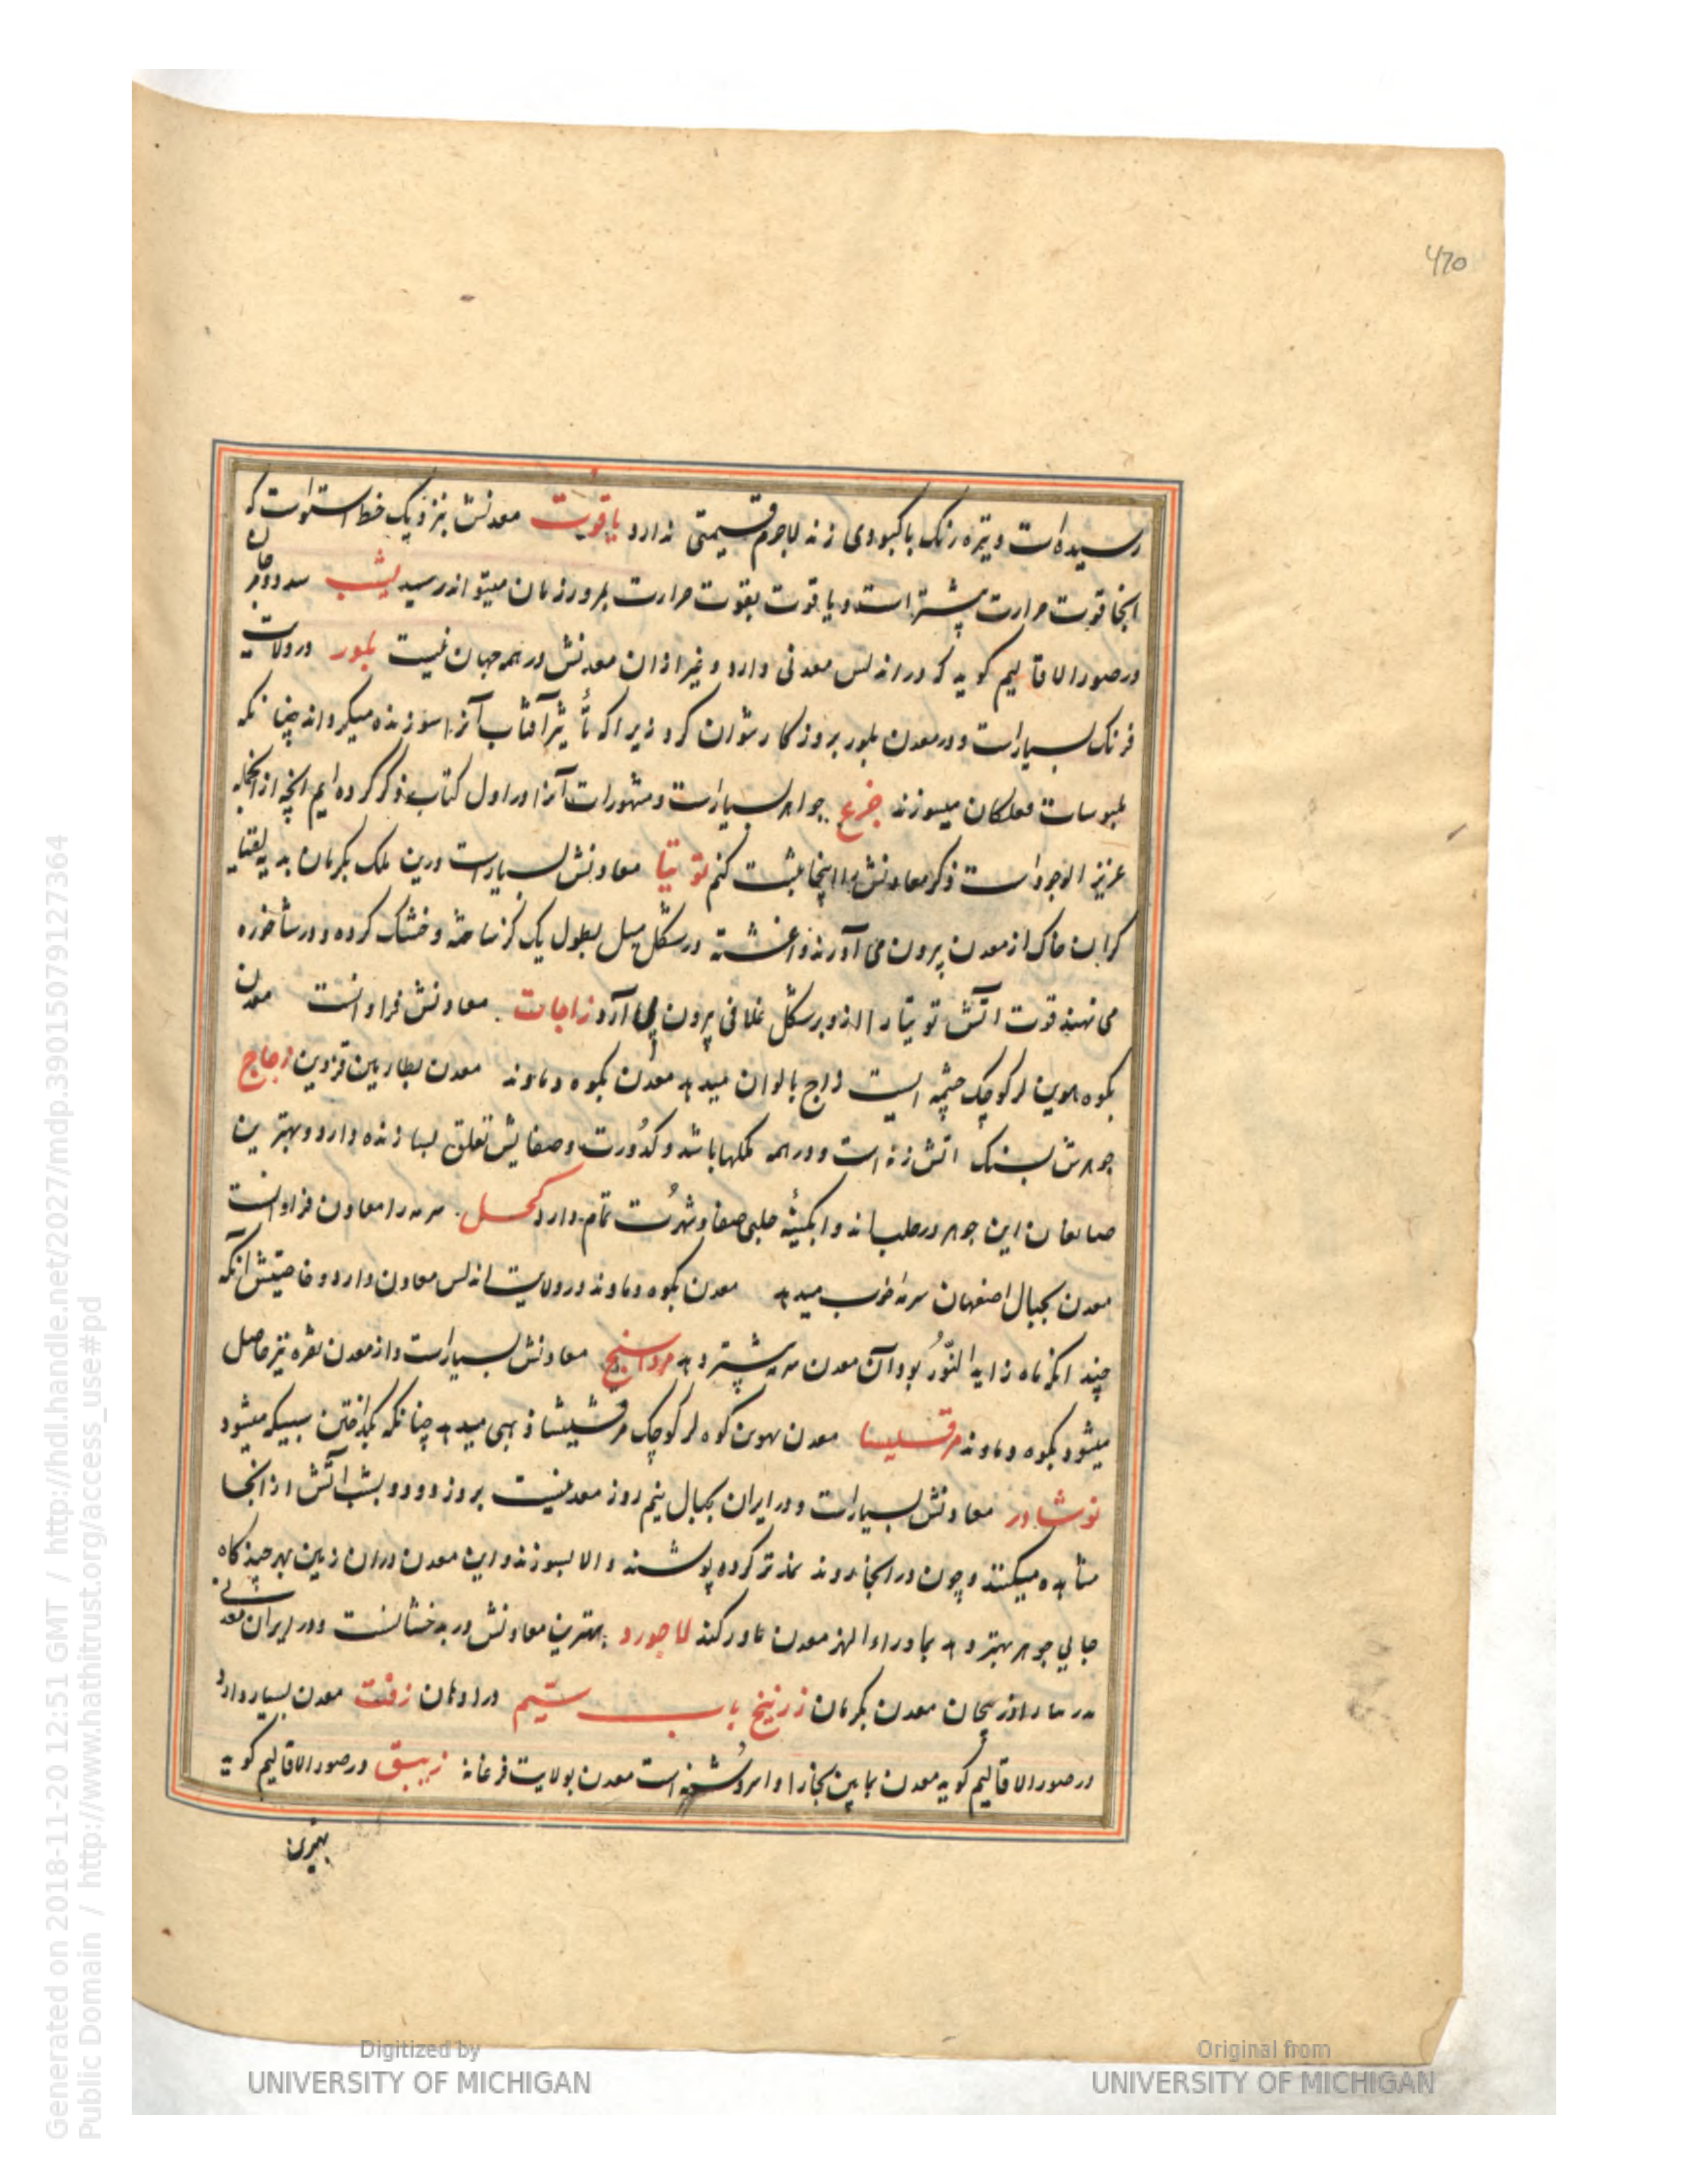 470
رسیده است و تیره رنک با کبودی زند لاجرم قیمتی ندارد یاقوت معدنش بنزدیک خط استواست که
انجا قوت حرارت پیشتر است و یاقوت بقوت حرارت بمرور زمان میتواند رسید یشب
در صور الاقالیم کوید که در اندلس معدنی دارد و غیر از ان معدنش در همه جهان نیست بلور در ولایت
فرنک بسیار است و در معدن بلور بروز کار نتوان کرد زیرا که تأثیر آفتاب آنرا سوزنده میکرداند چنانکه
ملبوسات فعلکان میسوزند جزع جواهر بسیار است و مشهورات آنرا در اول کتاب ذکر کرده ایم انچه از انجمله
عزیز الوجود است ذکر معادنش را اینجا ثبت کنم توتیا معادنش بسیار است درین ملک بکرمان بدیه
کران خاک از معدن بیرون می آورند و اغشته در شکل میل بطول یک کز ساخته و خشک کرده و در شاخوره
می نهند قوت اتش توتیا را از و بر شکل غلافی بیرون می آرد زاجات معادنش فراوانست معدن
بکوه لر کوچک چشمه ایست زاج بالوان میدهد معدن بکوه دماوند معدن بطارمین قزوین زجاج
جوهرش سنک اتش زنه است و در همه ملکها باشد و کدورت و صفایش تعلق بسازنده دارد و بهترین
صانعان این جوهر در حلب اند و ابکینهٔ حلبی صفا و شهرت تمام دارد کحل سرمه را معادن فراوانست
معدن بجبال اصفهان سرمه خوب میدهد معدن بکوه دماوند در ولایت اندلس معادن دارد و خاصیتش انکه
چند انکه ماه زاید النور بود آن معدن سرمه پیشتر دهد مرداسنج معادنش بسیار است و از معدن نقره نیز حاصل
میشود بکوه دماوند مرقسیسا معدن بهون کوه لر کوچک مرقشیشا ذهبی میدهد چنانکه بکداختن سبیکه میشود
نوشادر معادنش بسیار است و در ایران بجبال نیم روز معدنیست بروز دود و بشب اتش از انجا
مشاهده میکنند و چون در انجا روند نمد تر کرده پوشند و الا بسوزند و این معدن در ان زمین بهر چند کاه
جایی جوهر بهتر دهد بماوراء النهر معدن لاجورد بهترین معادنش در بدخشانست و در ایران معدنی
اذربیجان معدن بکرمان زرنیخ باب سیم در ادهان زفت معدن بسیار دارد
در صور الاقالیم کوید معدن مابین بخارا و اسروشنه است معدن بولایت فرغانه زیبق در صور الاقالیم کوید
بهترین
Digitized by
UNIVERSITY OF MICHIGAN
Original from
UNIVERSITY OF MICHIGAN
Generated on 2018-11-20 12:51 GMT / http://hdl.handle.net/2027/mdp.39015079127364
Public Domain / http://www.hathitrust.org/access_use#pd